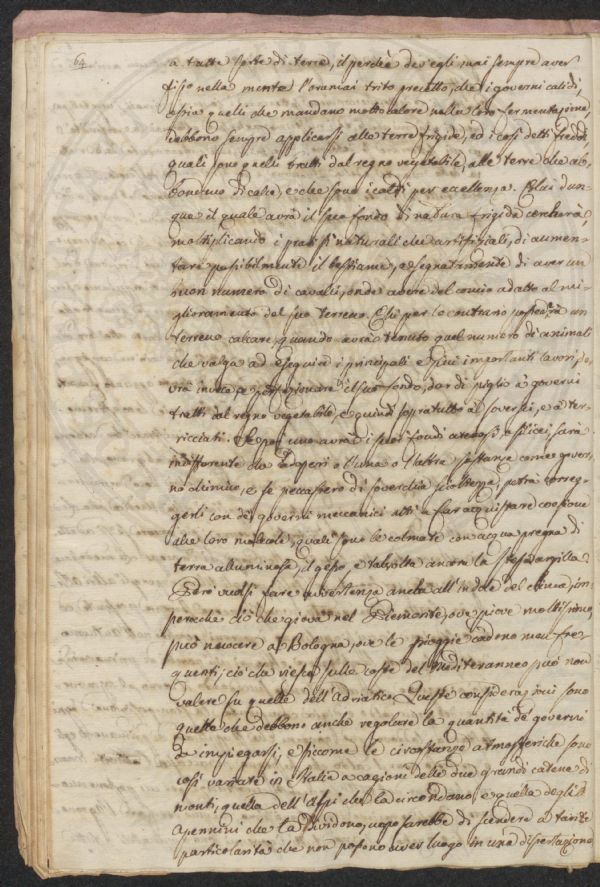 64
a tutte sorte di terre, il perchè dev'egli mai sempre aver
fisso nella mente l'oramai trito precetto, che i governi calidi,
ossia quelli che mandano molto calore nella loro fermentazione,
debbono sempre applicarsi alle terre frigide, ed i così detti freddi
quali sono quelli tratti dal regno vegetabile, alle terre che ab-
bondano di calce, e che sono i caldi per eccellenza. Colui dun-
que il quale avrà il suo fondo di natura frigida cercherà,
moltiplicando i prati sì naturali che artifiziali, di aumen-
tare possibilmente il bestiame, e segnatamente di aver un
buon numero di cavalli, onde avere del concio adatto al mi-
glioramento del suo terreno. Chi per lo contrario possederà un
terreno calcare, quando avrà tenuto quel numero di animali
che valga ad eseguire i principali e più importanti lavori, do-
vrà invece per il suo fondo, dar di piglio a' governi
tratti dal regno vegetabile, e quindi sopratutto ai soversci, e a' ter-
ricciati. Se poi uno avrà i suoi fondi arenosi, o silicei, sarà
indifferente che adoperi o l'una o l'altra sostanza come gover-
no chimico, e se peccassero di soverchia scioltezza, potrà correg-
gerli con dei governi meccanici atti a far acquistare coesione
alle loro molecole, quali sono le colmate con acqua pregna di
terra alluminosa, il gesso, e talvolta ancora la stessa argilla.
Però vuolsi fare avvertenza anche all'indole del clima, im-
perochè ciò che giova nel Piemonte, ove piove moltissimo,
può nuocere a Bologna, ove le pioggie cadono men fre-
quenti; ciò che riesce sulle coste del Mediteranneo può non
valere su quelle dell'Adriatico. Queste considerazioni sono
quelle che debbono anche regolare la quantità de' governi
da impiegarsi, e siccome le circostanze atmosferiche sono
così variate in Italia a cagione delle due grandi catene di
monti, quella dell'Alpi che la circondano, e quella degli
Apennini che la dividono, uopo sarebbe di scendere a tante
particolarità che non possono aver luogo in una dissertazione